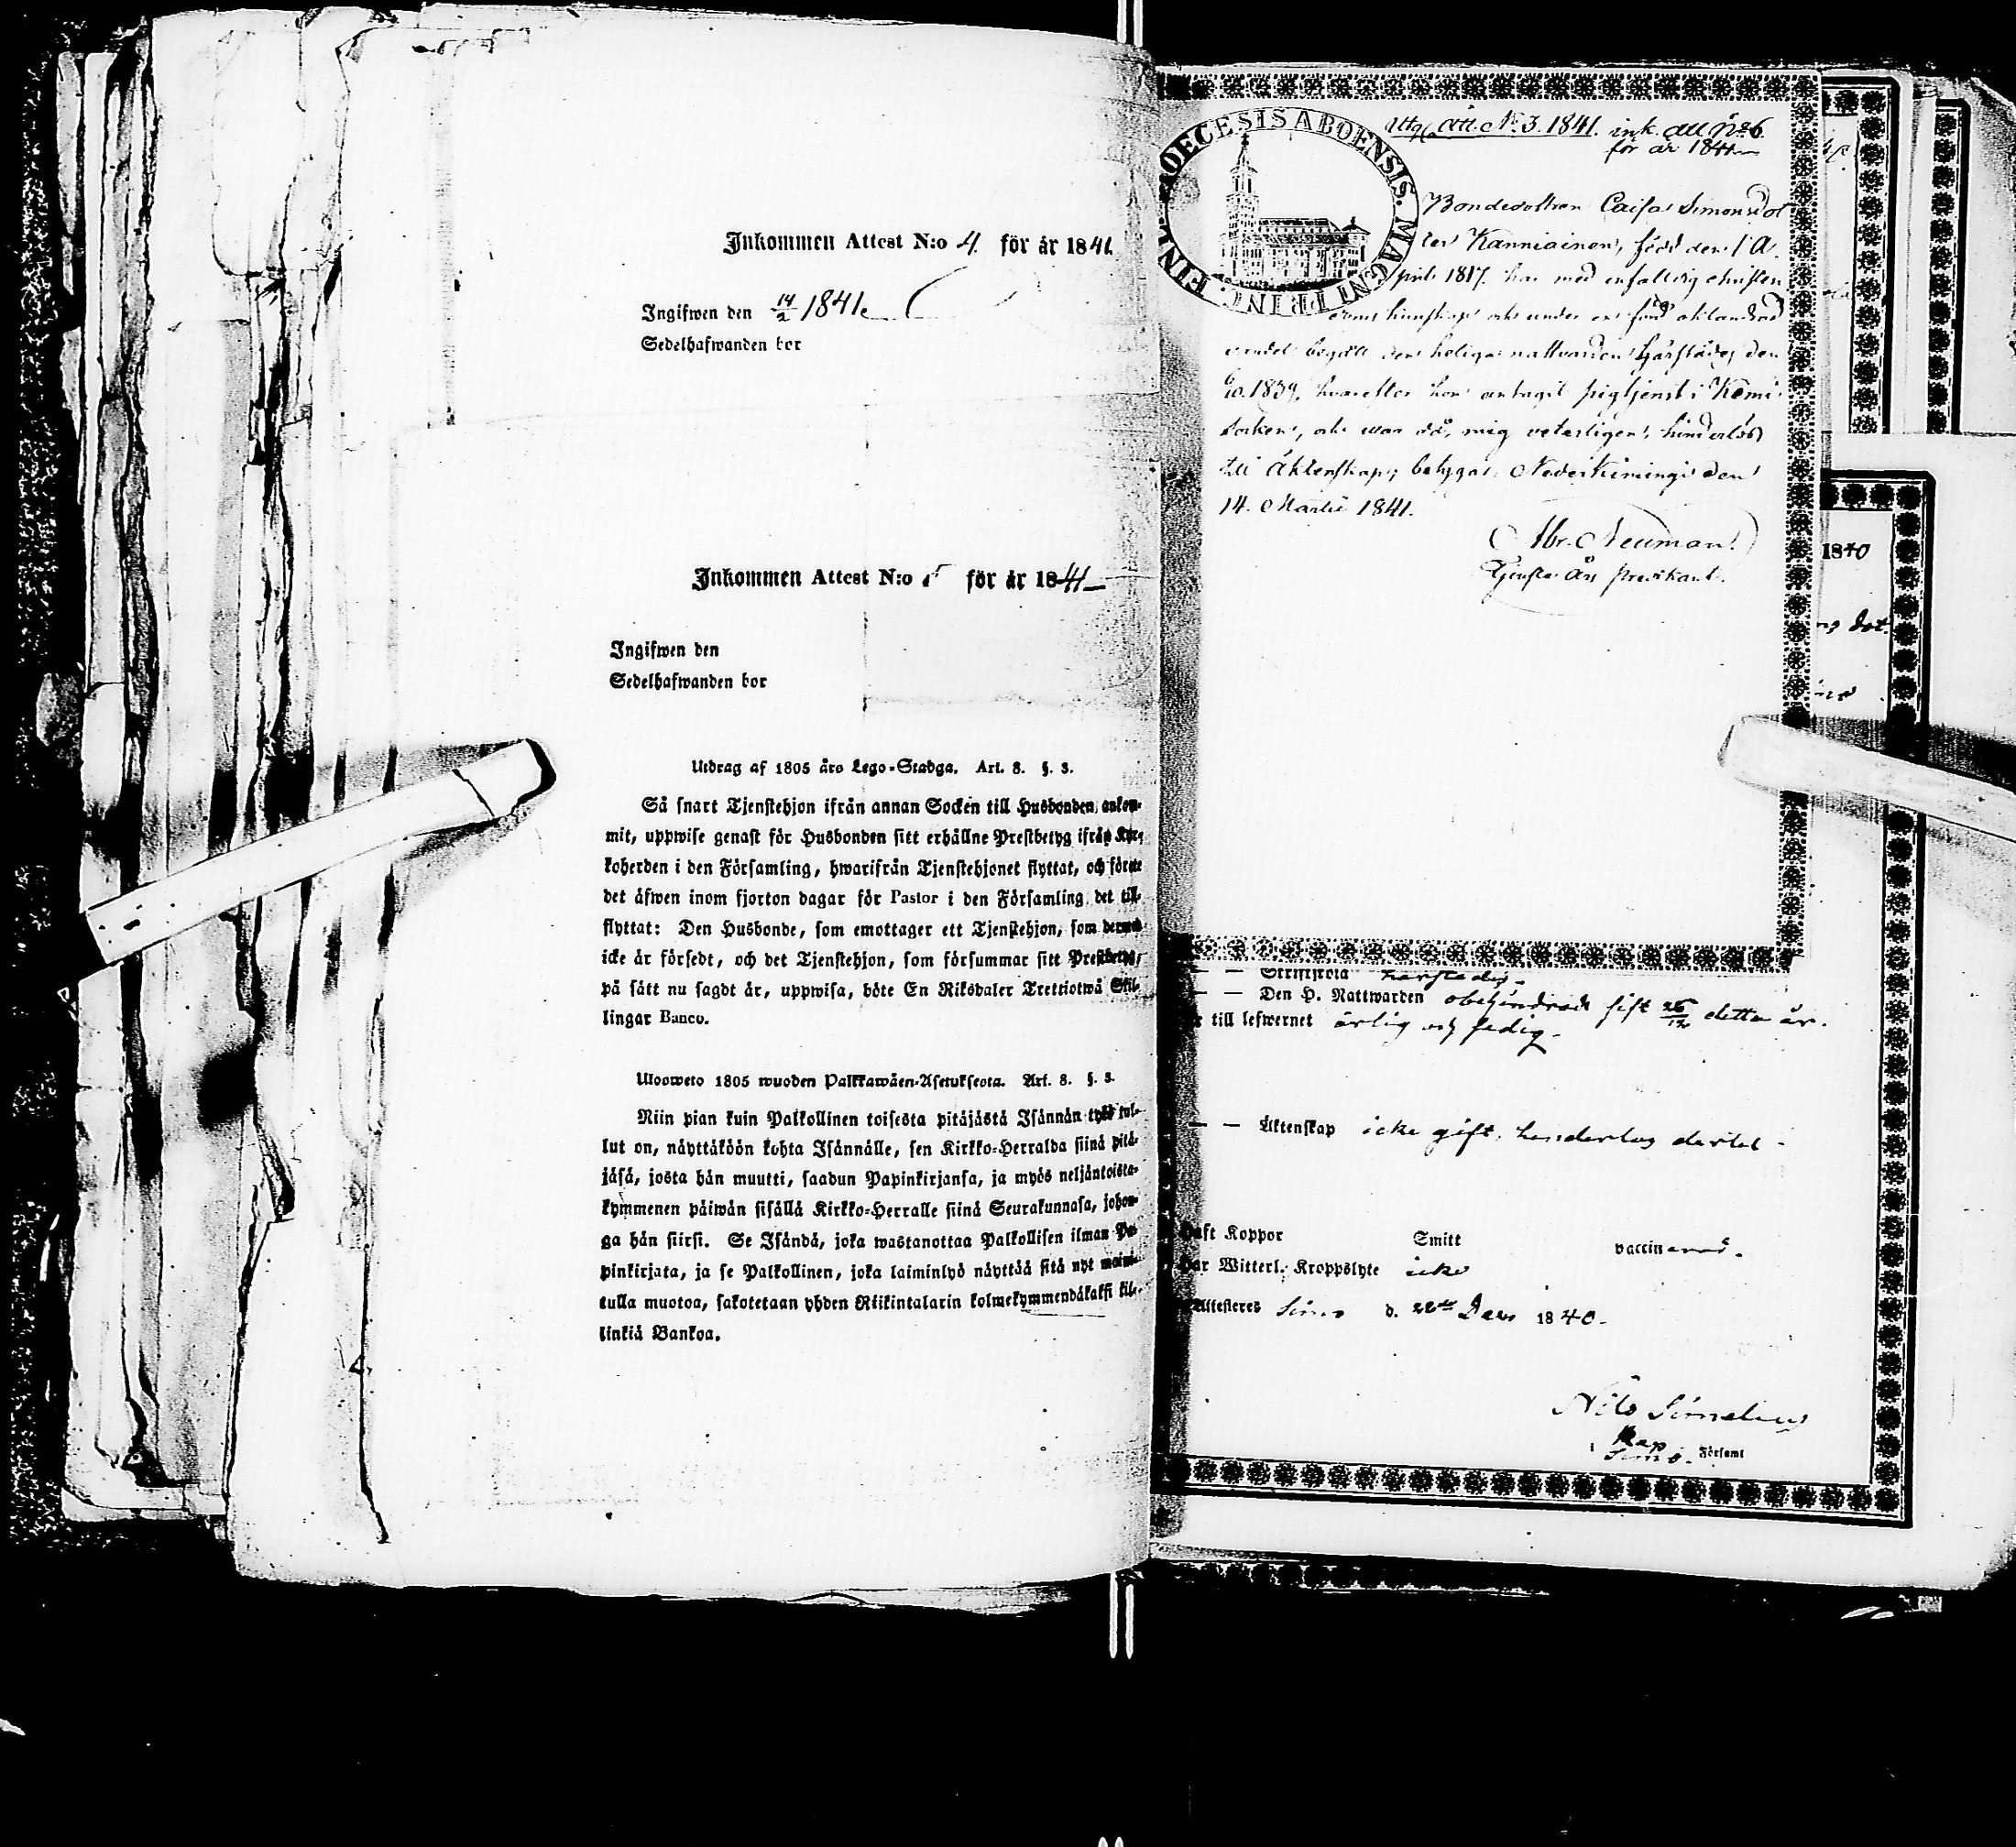 Inkommen Attest N:o 4. för år 1841.
Ingifwen den 14/2 1841
Sedelhafwanden bor
Inkommen Attest N:o 5 för år 1841
Ingifwen den
Sedelhafwanden bor
Utdrag af 1805 års Lego-Stadga. Art. 8. §. 3.
Så snart Tjenstehjon ifrån annan Socken till Husbonden ankom-
mit, uppwise genast för Husbonden sitt erhållne Prestbetyg ifrån Kyr-
koherden i den Församling, hwarifrån Tjenstehjonet flyttat, och förete
det äfwen inom fjorton dagar för Pastor i den Församling det till-
flyttat: Den Husbonde, som emottager ett Tjenstehjon, som dermed
icke är försedt, och det Tjenstehjon, som försummar sitt Prestbetyg,
på sätt nu sagdt är, uppwisa, böte En Riksdaler Trettiotwå Skil-
lingar Banco.
Ulosweto 1805 wuoden Palkkawäen-Asetuksesta. Art. 8. §. 3.
Niin pian kuin Palkollinen toisesta pitäjästä Isännän tykö tul-
lut on, näyttäköön kohta Isännälle, sen Kirkko-Herralda siinä pitä-
jäsä, josta hän muutti, saadun Papinkirjansa, ja myös neljäntoista-
kymmenen päiwän sisällä Kirkko-Herralle siinä Seurakunnasa, johon-
ga hän siirsi. Se Isändä, joka wastanottaa Palkollisen ilman Pa-
pinkirjata, ja se Palkollinen, joka laiminlyö näyttää sitä nyt maini-
tulla muotoa, sakotetaan yhden Riikintalarin kolmekymmendäkaksi kil-
linkiä Bankoa.
DIOECESIS ABOENSIS. MAGNI PRINC. FINL.
Utg. Att. No 3. 1841. ink. att No 6
för år 1841
Bondedottren Caisa Simonsdot
ter Kanniainen, född den 1 A
pril 1817. har med enfaldig christen
doms kunskap och under en förd oklandrad
vandel begått den heliga nattvarden härstädes den
1839, hvarefter hon antagit pigtjenst i Kemi
Socken, och war då, mig veterligen, hinderlös
till Äktenskap; betygar. Nederkimingi den
14. Martii 1841.
Abr. Neuman
Tjenste Års predikant.
1840
dot.
— — Skriftskola härstädes.
— — Den H. Nattwarden obehindrad sist 26/12 detta år.
till lefwernet ärlig och sedig
— — Äktenskap icke gift, hinderlös dertill
Haft Koppor Smitt vaccinerad.
Har Witterl. Kroppslyte icke
Attesteres Simo d. Dec 1840.
Nils Simelius
Kap
i Simo. Församl